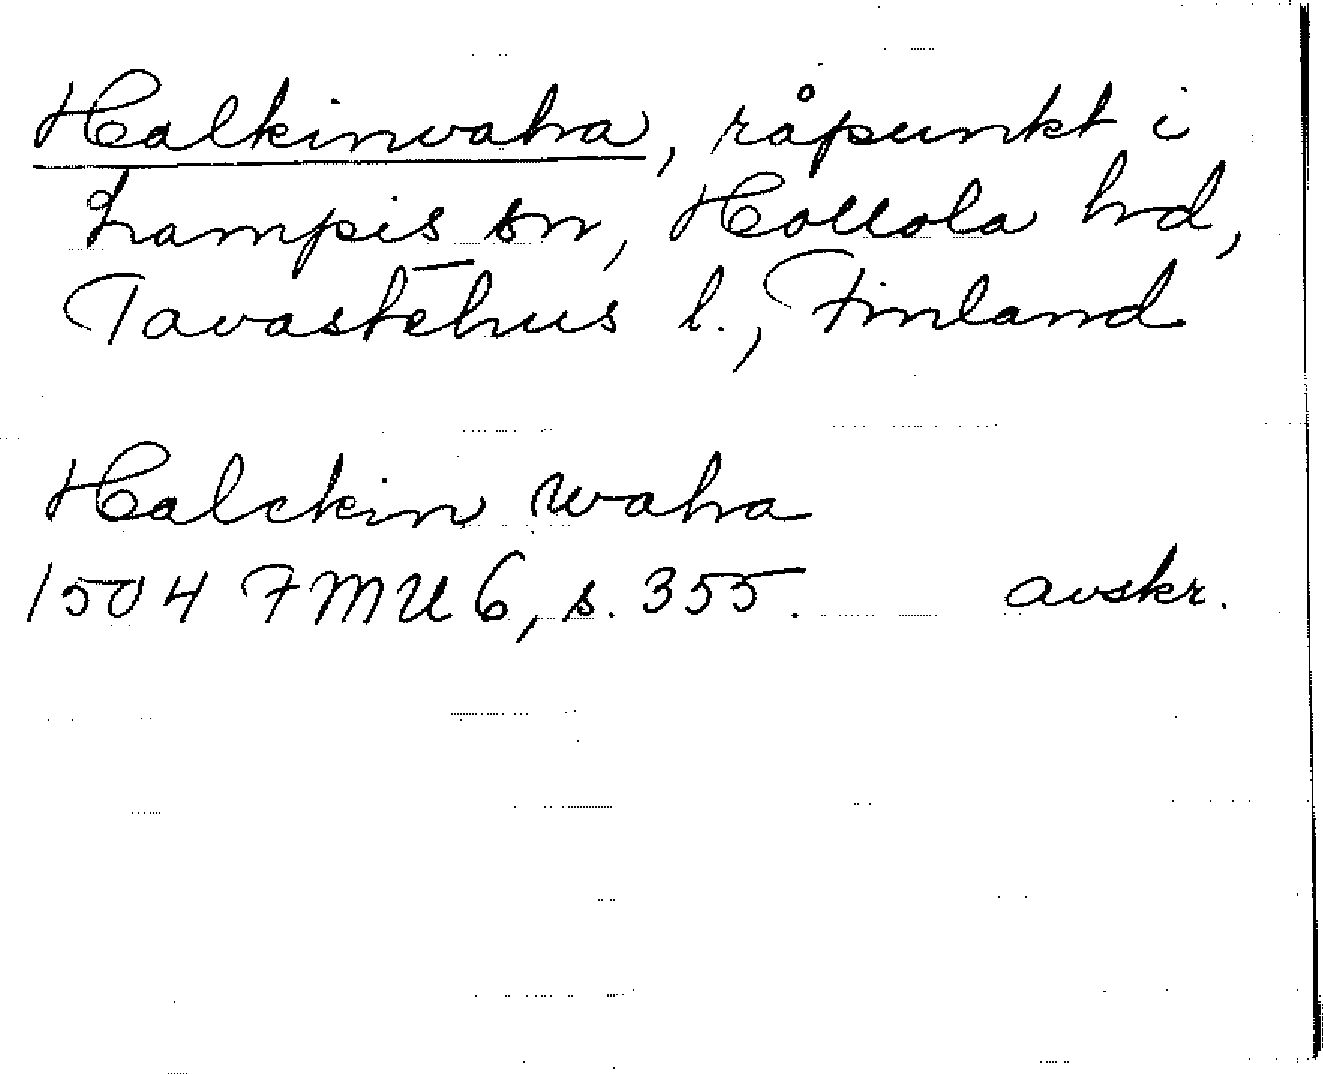 Halkinvaha, råpunkt i
Lampis sn, Hollola hd,
Tavastehus l., Finland
Halckin waha
1504 FMU 6, s. 355. avskr.